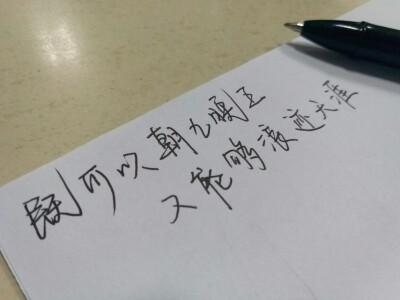 既可以朝九晚五
又能够浪迹天涯